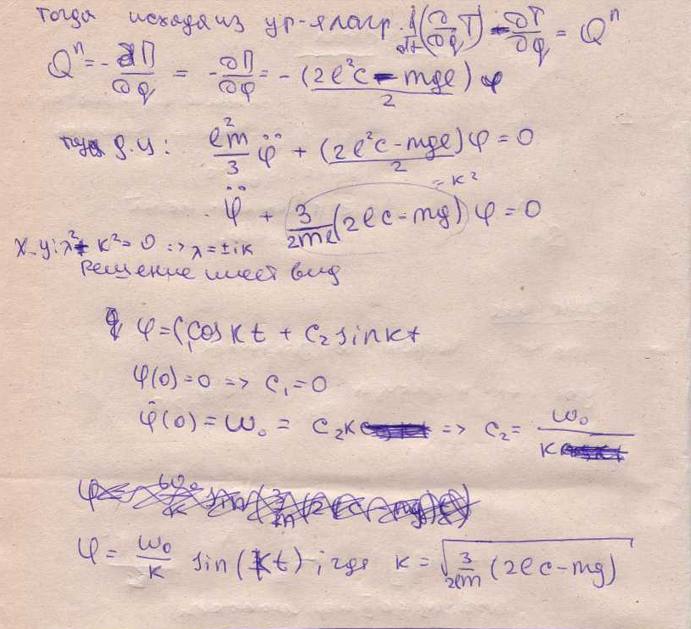 тогда исходя из ур-я лагр. d/dt(∂T/∂q̇) - ∂T/∂q = Qⁿ
Qⁿ = -∂П/∂q = -∂П/∂φ = -(2l²c - mgl)/2 φ
д.у: l²m/3 φ̈ + (2l²c - mgl)/2 φ = 0
= k²
φ̈ + 3/2ml (2lc - mg) φ = 0
х.у: λ² + k² = 0 => λ = ±ik
Решение имеет вид
φ = C₁cos kt + C₂ sin kt
φ(0) = 0 => C₁ = 0
φ̇(0) = ω₀ = C₂k => C₂ = ω₀/k
φ = ω₀/k sin(kt), где k = √(3/2lm (2lc - mg))